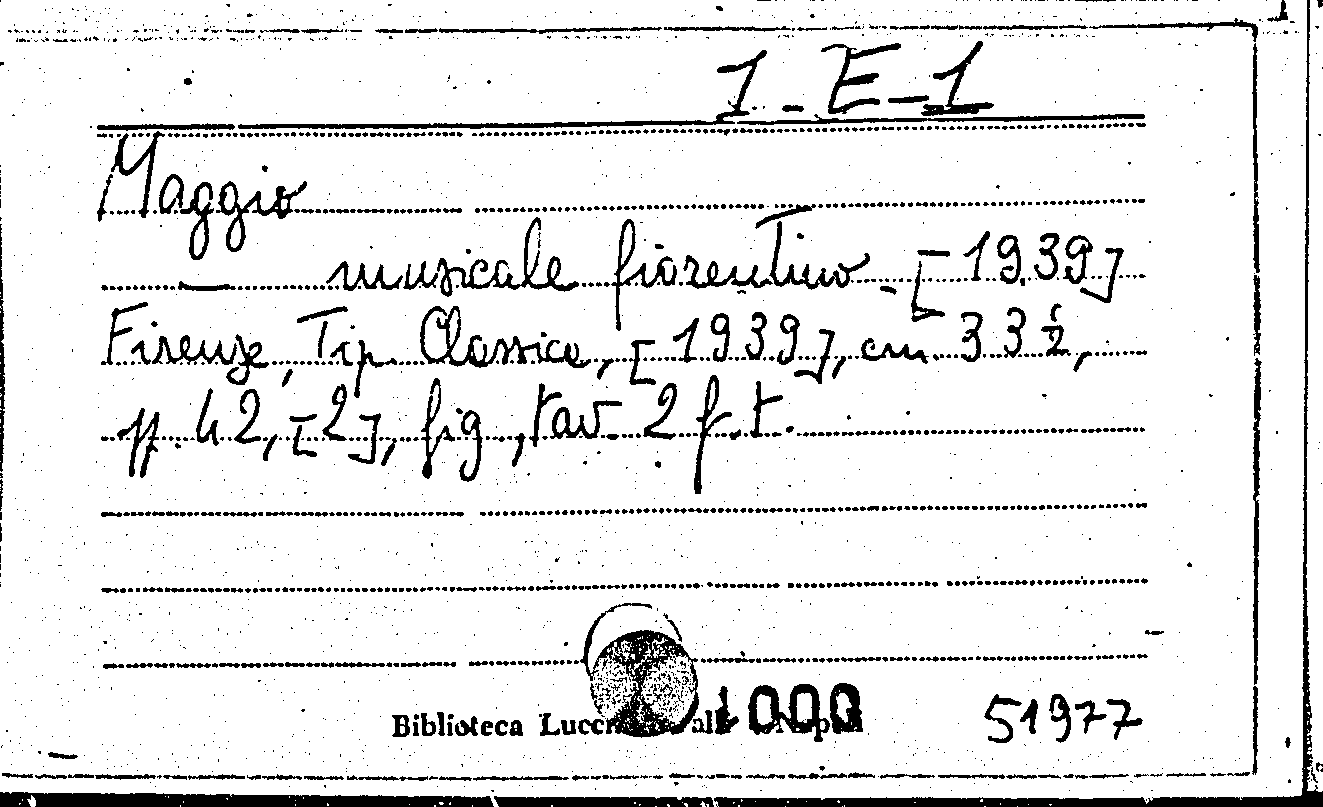 1-E-1
Maggio
— musicale fiorentino - [1939]
Firenze, Tip. Classica, [1939], cm. 33 ½,
pp. 42, [2], fig., tav. 2 f.t.
1000
Biblioteca 51977